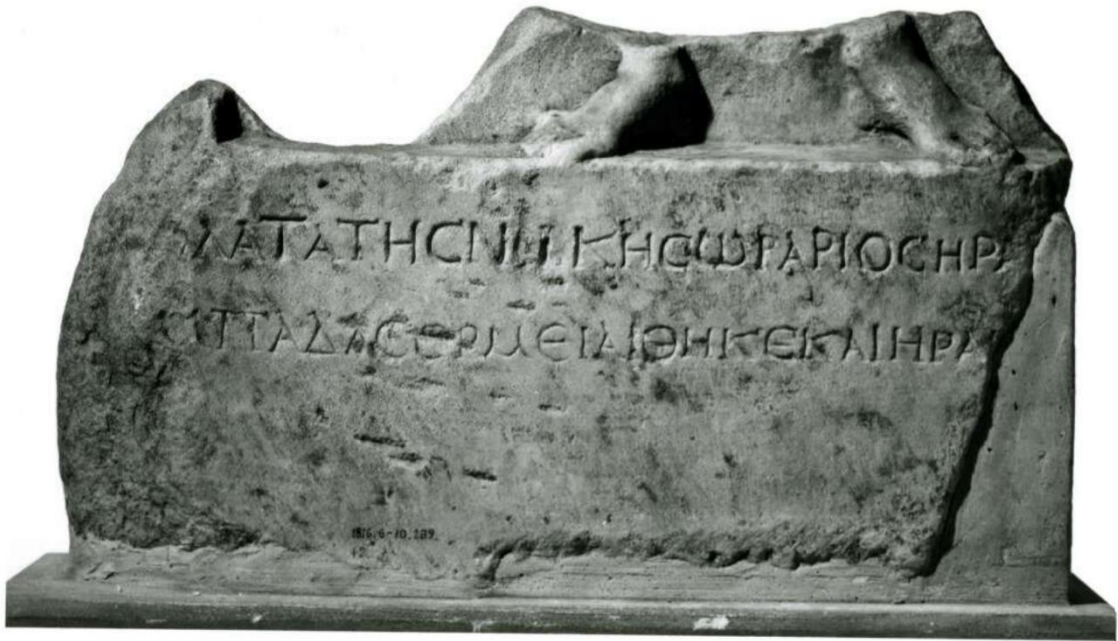 ΛΑΤΑΤΗϹΝΙΚΗϹΩΡΑΡΙΟϹΗΡΑ
ΠΑΔΑϹΕΡΜΕΙΑΙΘΗΚΕΚΑΙΗΡΑ
1816.6-10.289